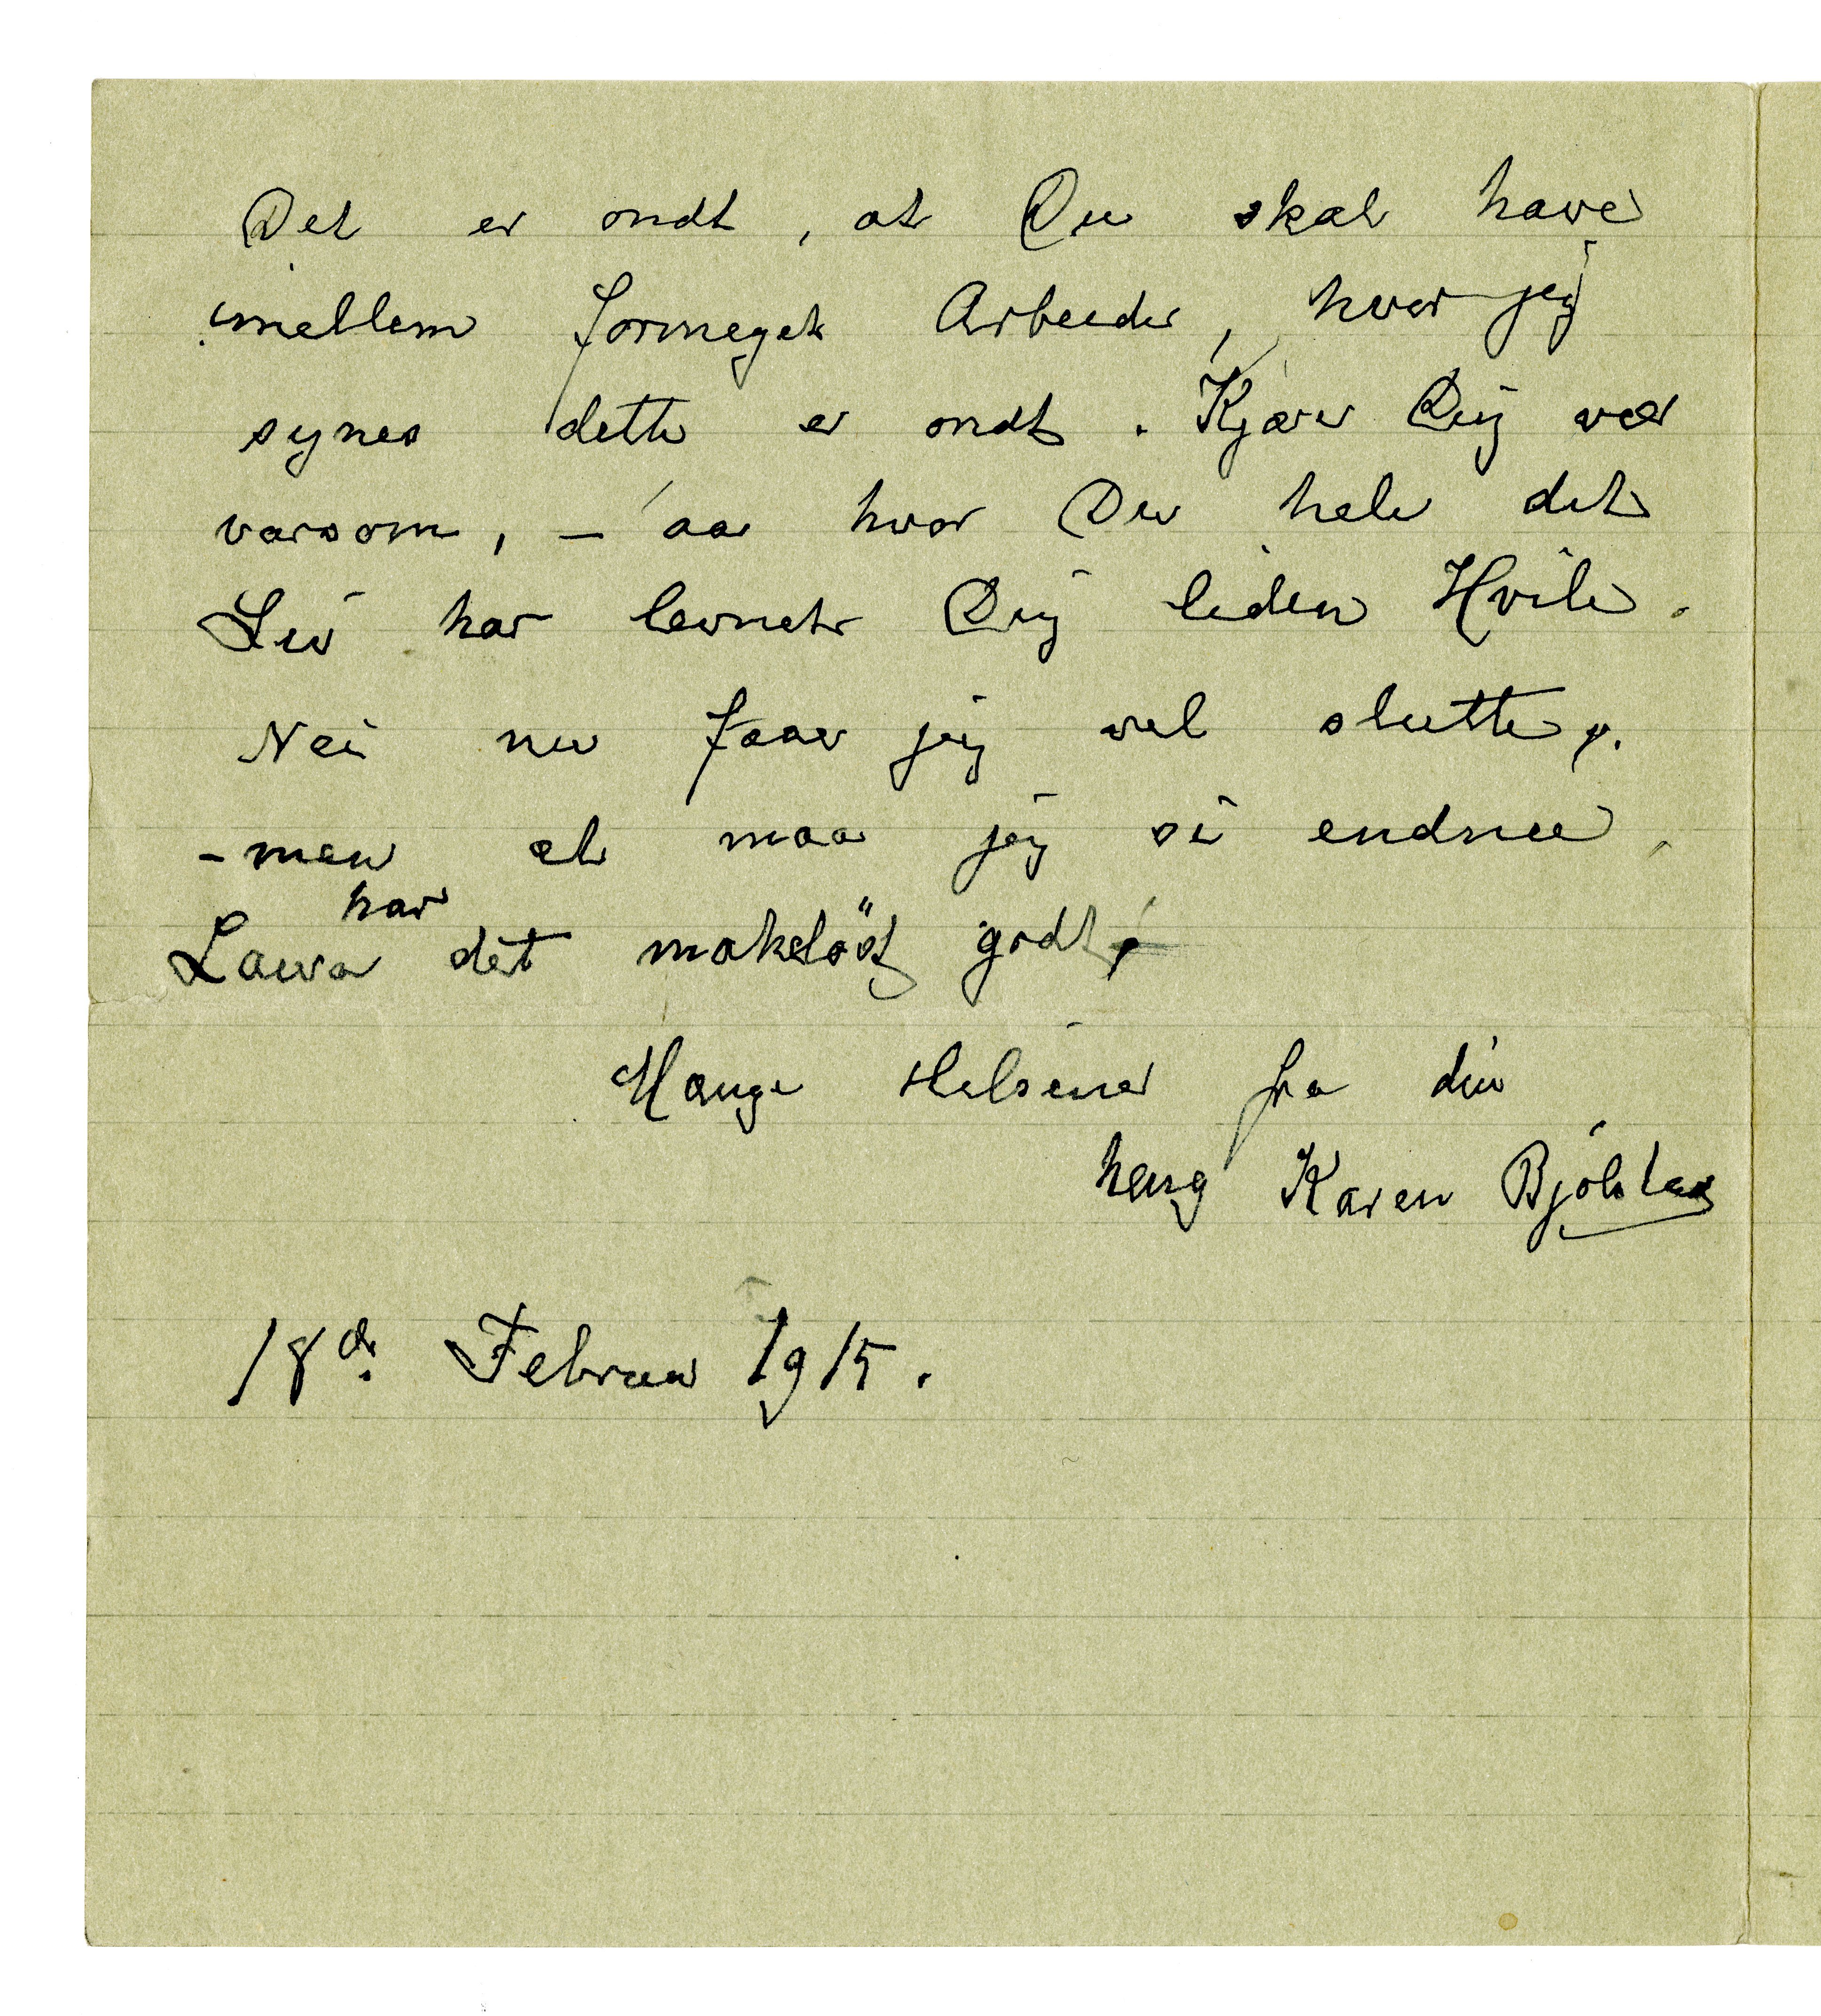 Det er ondt, at Du skal have
imellem formeget Arbeide, hvor jeg
synes dette er ondt. Kjære Dig vær
varsom, – aa hvor Du hele dit
Liv har levnet Dig liden Hvile.
Nei nu faar jeg vel slutte,
– men et maa jeg si endnu,
har
Laura det makelöst godt,
Mange Hilsener fra din
heng Karen Bjölstad
18de Februar 1915.